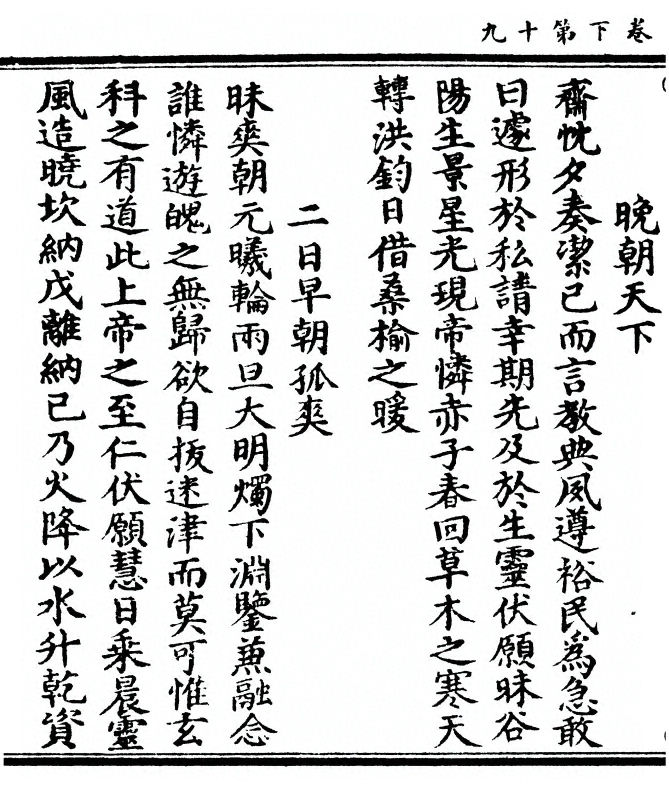 卷下第十九
晚朝天下
齋忱夕奏潔己而言教典夙遵裕民為急敢
曰遽形於私請幸期先及於生靈伏願昧谷
陽生景星光現帝憐赤子春回草木之寒天
轉洪鈞日借桑榆之暖
二日早朝孤爽
昧爽朝元曦輪雨旦大明燭下淵鑒兼融念
誰憐遊魄之無歸欲自拔迷津而莫可惟玄
科之有道此上帝之至仁伏願慧日乘晨靈
風造曉坎納戊離納己乃火降以水升乾資